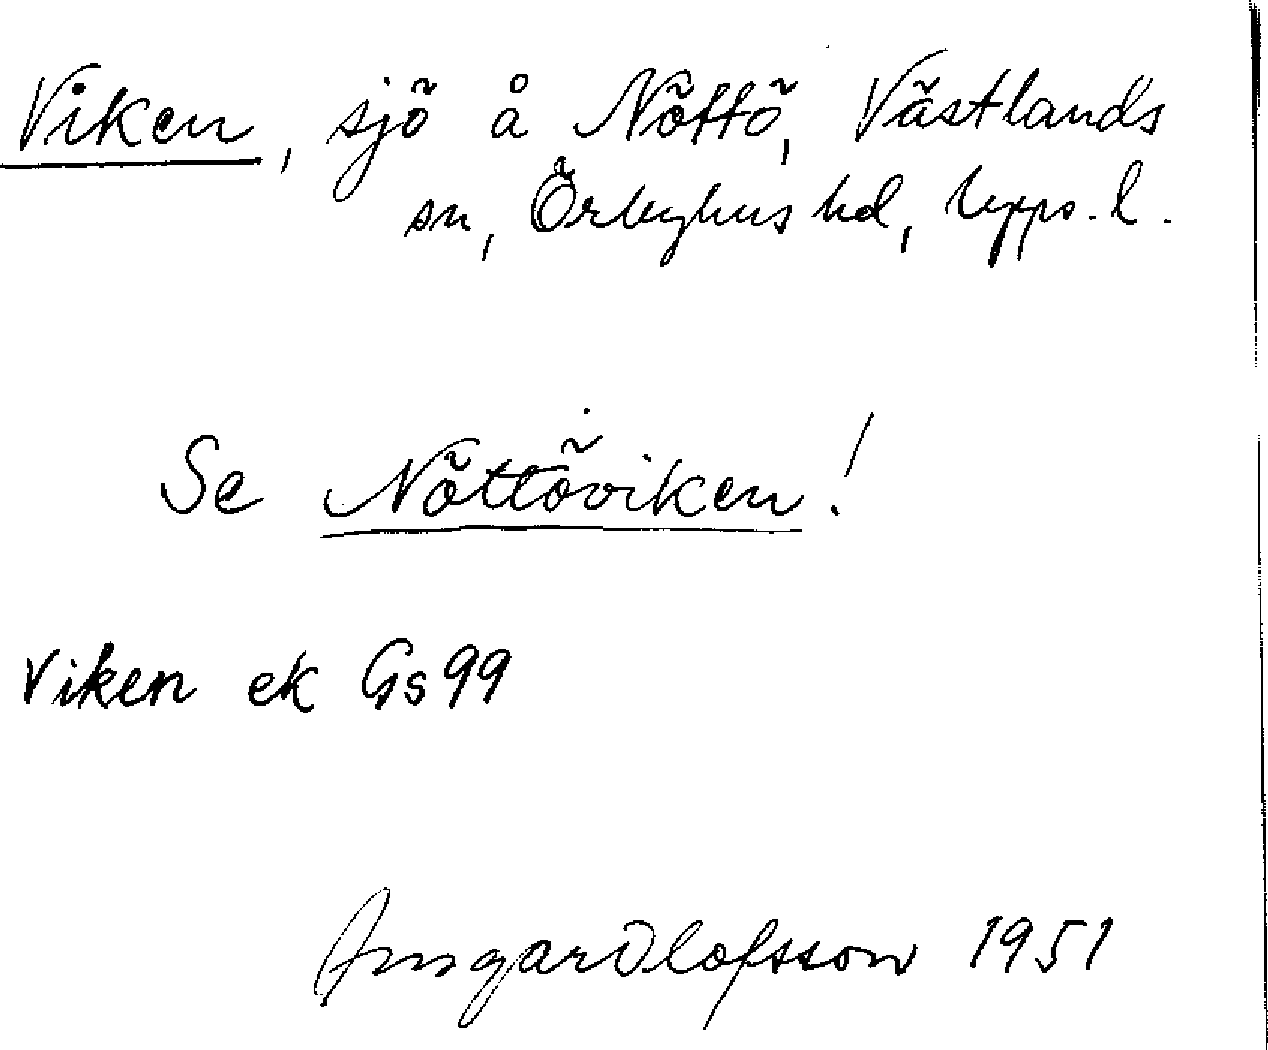 Viken, sjö å Nöttö, Västlands
sn, Örbyhus hd, Upps. l.
Se Nöttöviken!
Viken ek Gs 99
Ansgar Olofsson 1951